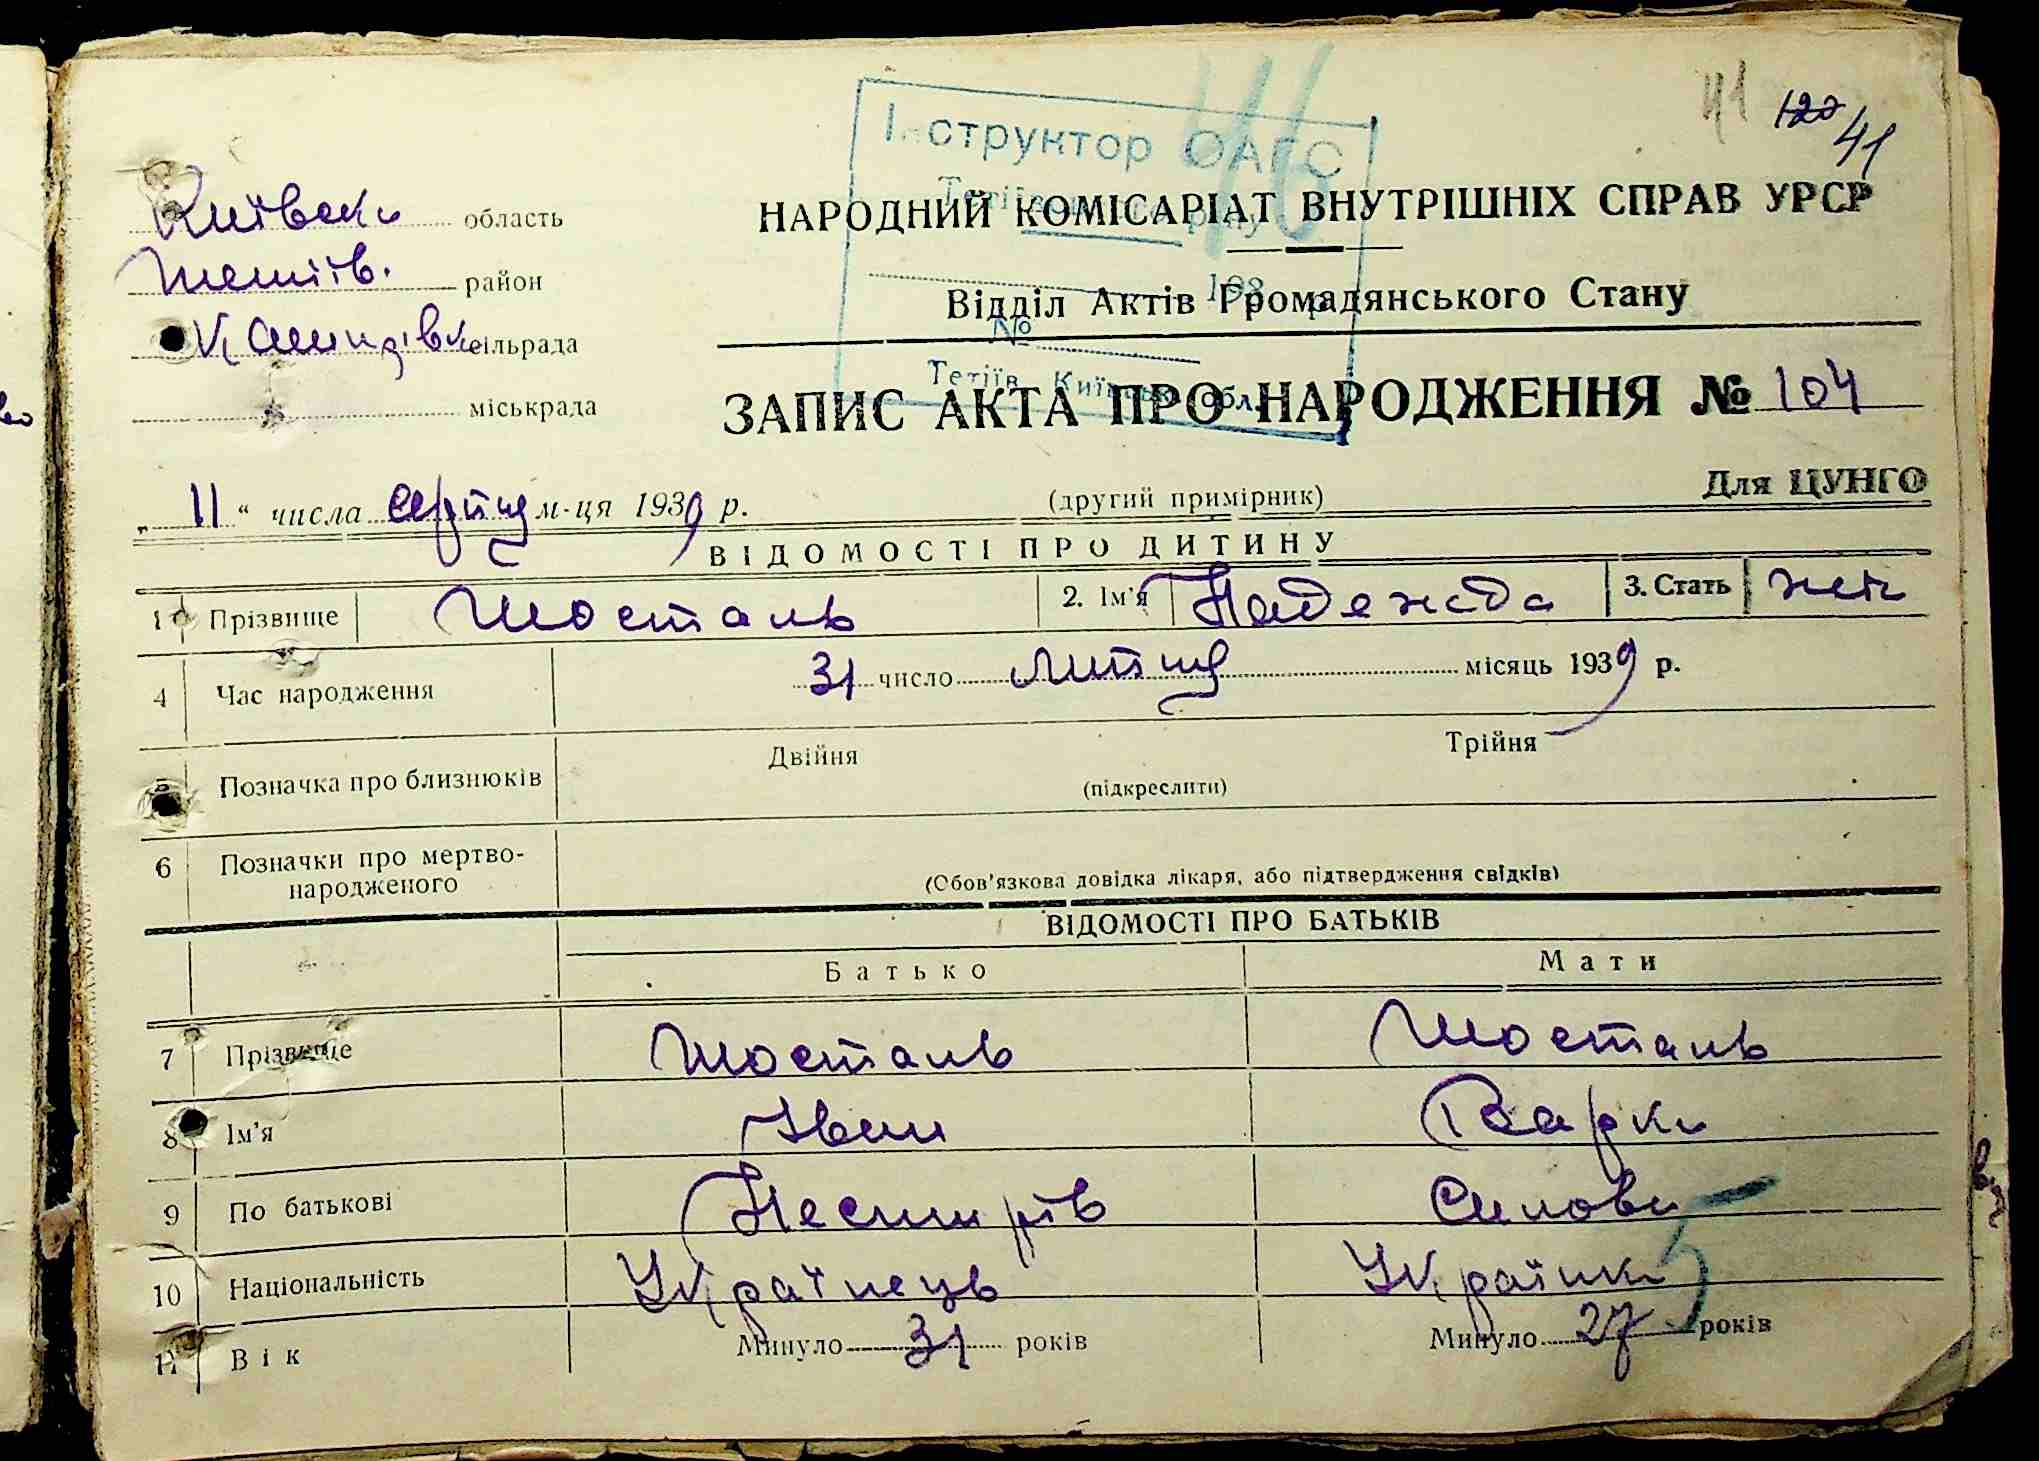 41 120 41
Інструктор ОАГС
Київськ. область
НАРОДНИЙ КОМІСАРІАТ ВНУТРІШНІХ СПРАВ УРСР
Тетіїв. район
193 р.
Відділ Актів Громадянського Стану
№
сільрада
Тетіїв, Київської обл.
міськрада
ЗАПИС АКТА ПРО НАРОДЖЕННЯ № 104
„ 11 “ числа серпця м-ця 1939 р.
(другий примірник)
Для ЦУНГО
ВІДОМОСТІ ПРО ДИТИНУ
1 Прізвище Шосталь 2. Ім'я Надежда 3. Стать жін
4 Час народження 31 число липця місяць 1939 р.
Позначка про близнюків Двійня Трійня
(підкреслити)
6 Позначки про мертво-
народженого
(Обов'язкова довідка лікаря, або підтвердження свідків)
ВІДОМОСТІ ПРО БАТЬКІВ
Батько Мати
7 Прізвище Шосталь Шосталь
8 Ім'я Іван Варка
9 По батькові Нестирів Силова
10 Національність Українець Українка
11 Вік Минуло 31 років Минуло 27 років